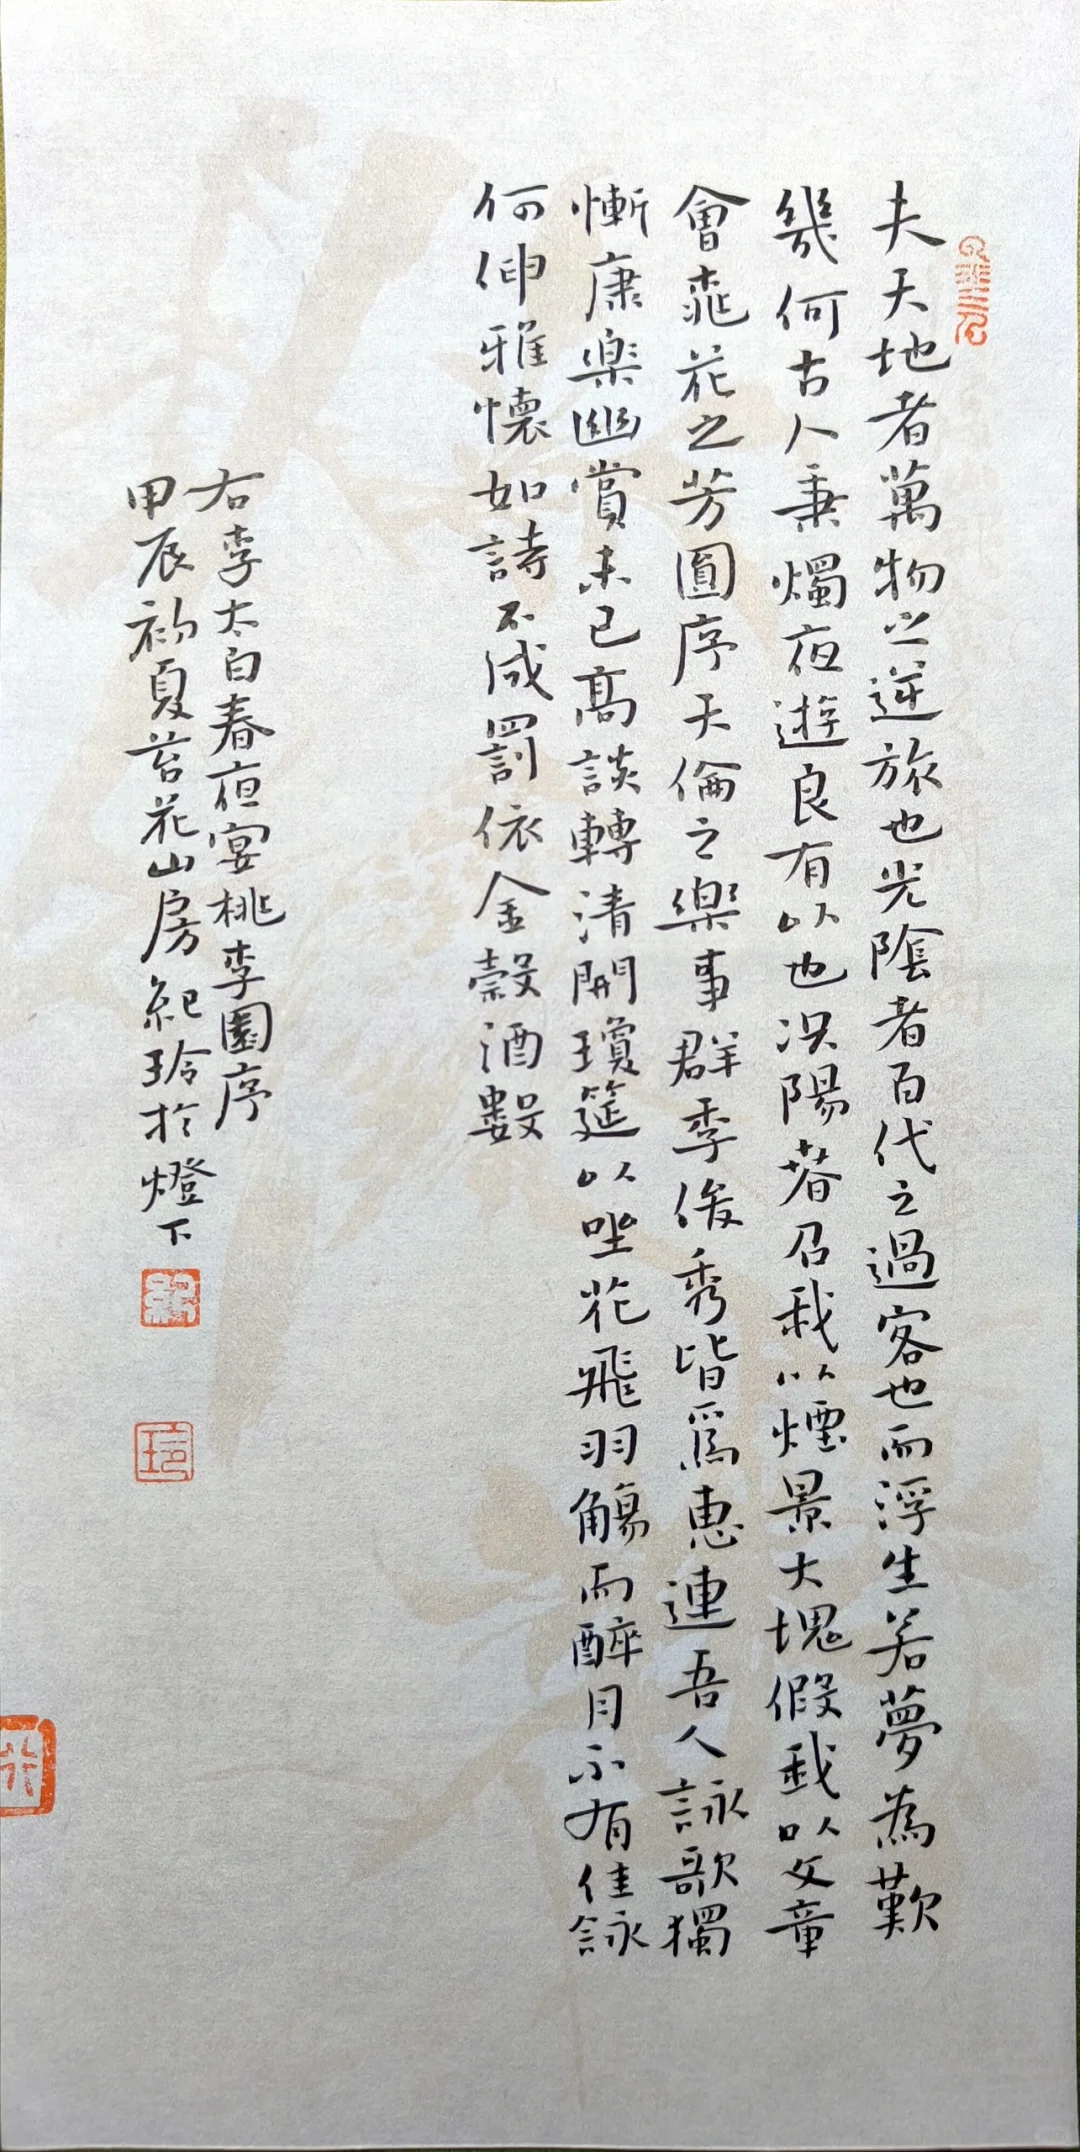 夫天地者萬物之逆旅也光陰者百代之過客也而浮生若夢為歎
幾何古人秉燭夜遊良有以也況陽春召我以煙景大塊假我以文章
會桃花之芳園序天倫之樂事群季俊秀皆為惠連吾人詠歌獨
慚康樂幽賞未已高談轉清開瓊筵以坐花飛羽觴而醉月不有佳詠
何伸雅懷如詩不成罰依金穀酒數
右李太白春夜宴桃李園序
甲辰初夏苔花山房紀玲於燈下
紀
玲